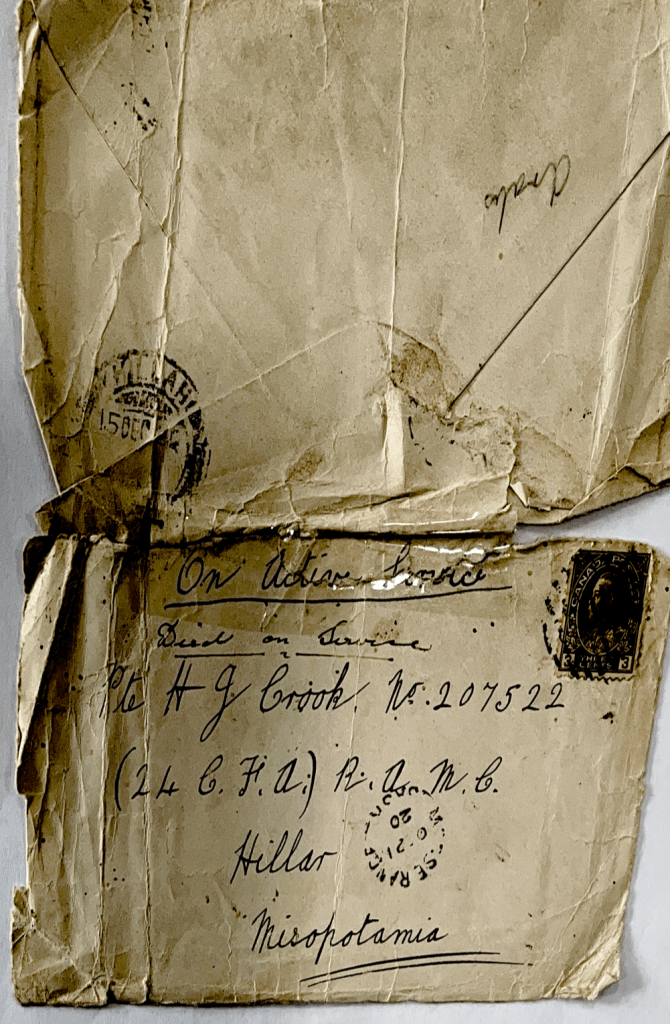 HILLAH
15 DEC
On Active Service
Died on Service
Pte H G Crook. No. 207522
(24 C. F. A.) R. A. M. C.
Hillar
Misopotamia
CANADA POSTAGE
3 3
MOOSE RANGE
20